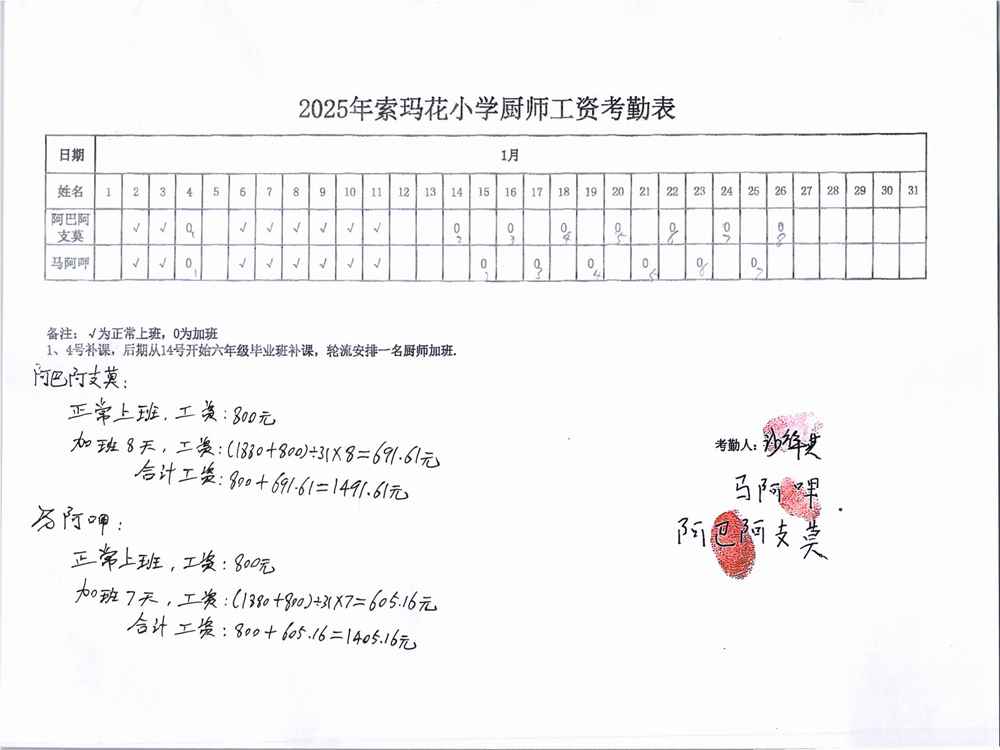 2025年索玛花小学厨师工资考勤表
日期 1月
姓名 1 2 3 4 5 6 7 8 9 10 11 12 13 14 15 16 17 18 19 20 21 22 23 24 25 26 27 28 29 30 31
阿巴阿支莫 √ √ 0 1 √ √ √ √ √ √ 0 2 0 3 0 4 0 5 0 6 0 7 0 8
马阿呷 √ √ 0 1 √ √ √ √ √ √ 0 2 0 3 0 4 0 0 0 7
备注：√为正常上班，0为加班
1、4号补课，后期从14号开始六年级毕业班补课，轮流安排一名厨师加班.
阿巴阿支莫：
正常上班，工资：800元
加班8天，工资：(1880+800)÷31×8=691.61元
合计工资：800+691.61=1491.61元
马阿呷：
正常上班，工资：800元
加班7天，工资：(1880+800)÷31×7=605.16元
合计工资：800+605.16=1405.16元
考勤人：
马阿呷
阿巴阿支莫